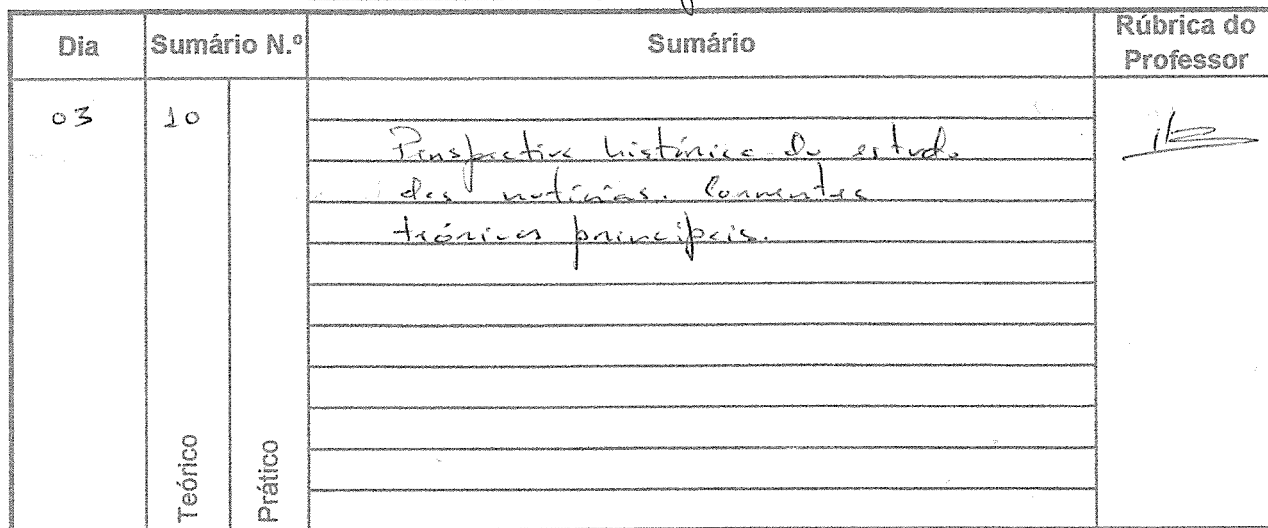 Dia Sumário N.º Sumário Rúbrica do Professor
03 10
Perspectiva histórica do estudo
das notícias. Correntes
teóricas principais.
Teórico Prático